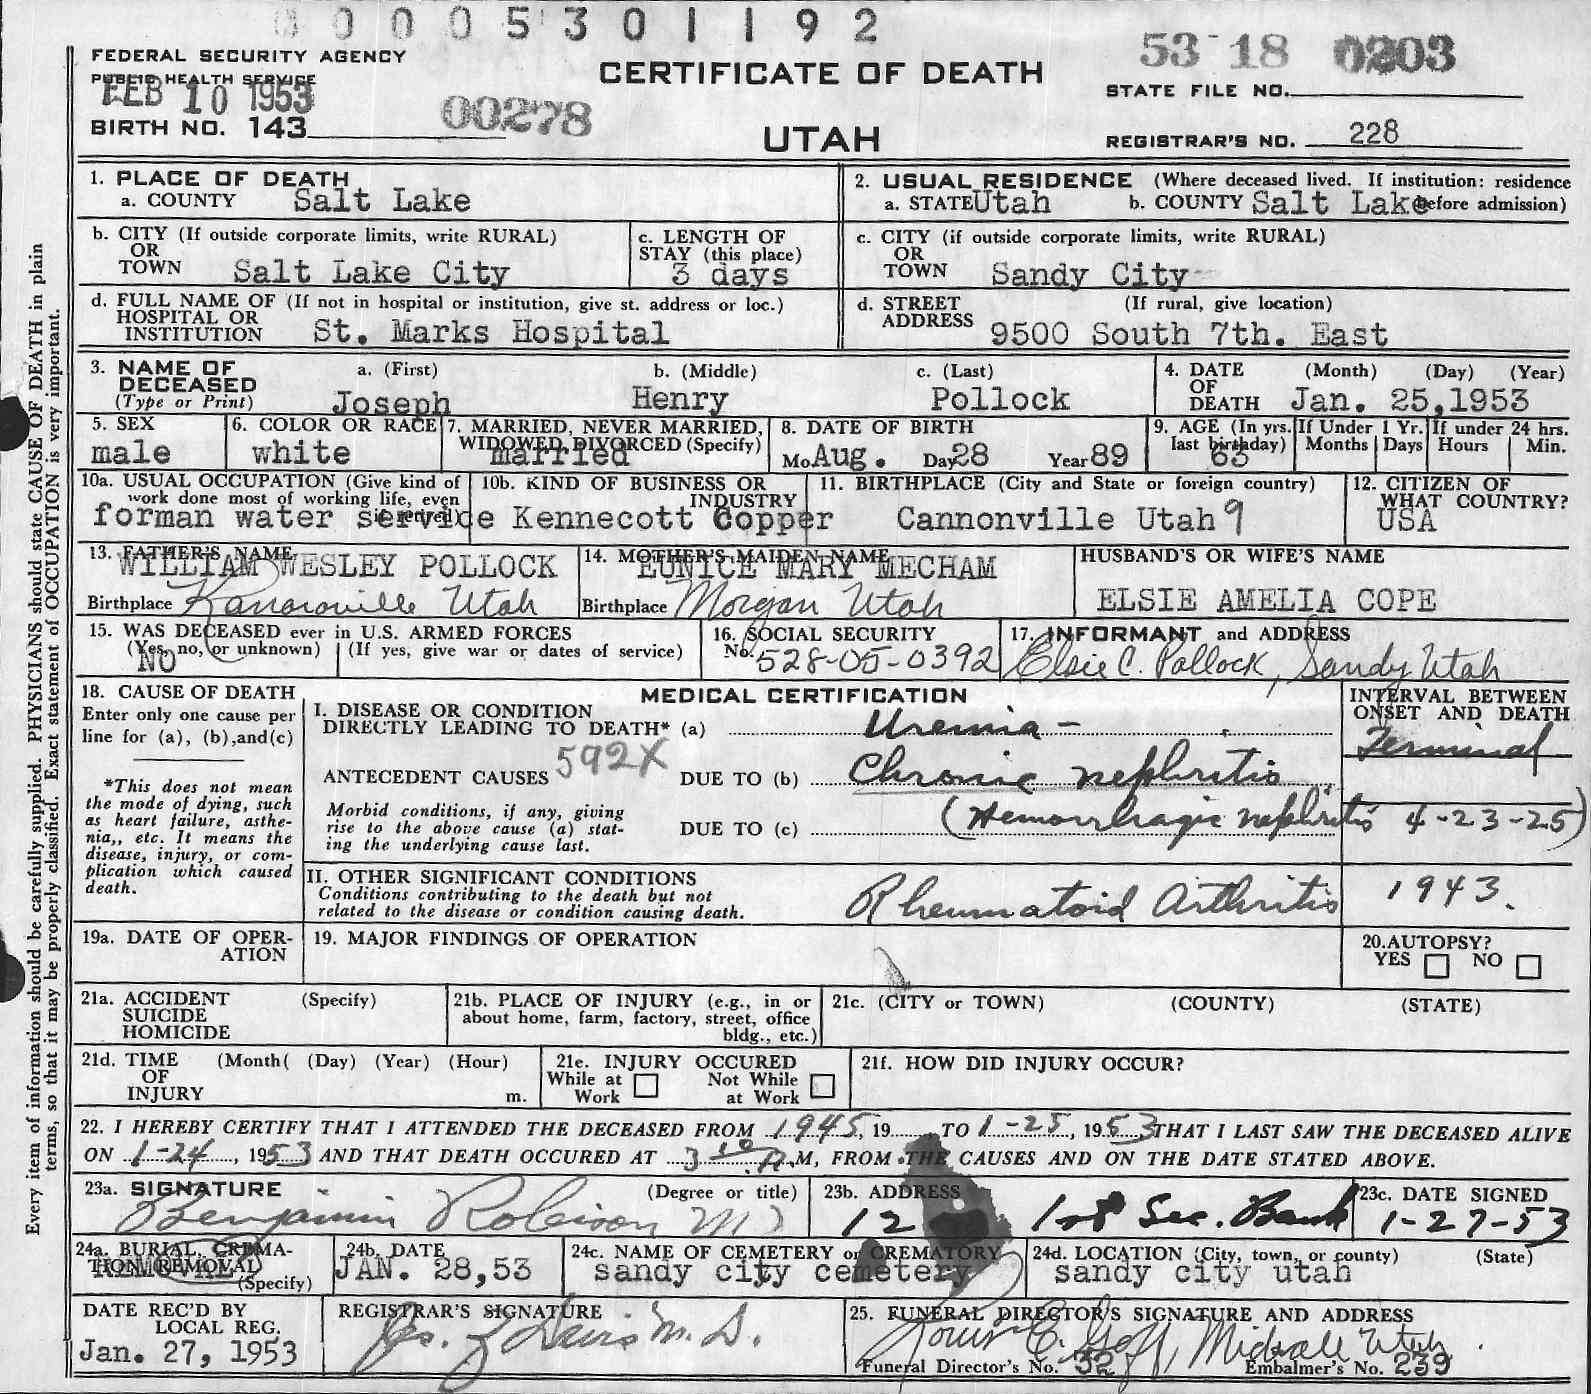 0 0 0 5 3 0 1 1 9 2
53-18 0303
FEDERAL SECURITY AGENCY
PUBLIC HEALTH SERVICE
FEB 10 1953
BIRTH NO. 143
00278
CERTIFICATE OF DEATH
UTAH
STATE FILE NO.
REGISTRAR'S NO. 228
Every item of information should be carefully supplied. PHYSICIANS should state CAUSE OF DEATH in plain
terms, so that it may be properly classified. Exact statement of OCCUPATION is very important.
1. PLACE OF DEATH
a. COUNTY Salt Lake
2. USUAL RESIDENCE (Where deceased lived. If institution: residence
before admission)
a. STATE Utah b. COUNTY Salt Lake
b. CITY (If outside corporate limits, write RURAL)
OR
TOWN Salt Lake City
c. LENGTH OF
STAY (this place)
3 days
c. CITY (if outside corporate limits, write RURAL)
OR
TOWN Sandy City
d. FULL NAME OF (If not in hospital or institution, give st. address or loc.)
HOSPITAL OR
INSTITUTION St. Marks Hospital
d. STREET (If rural, give location)
ADDRESS 9500 South 7th. East
3. NAME OF
DECEASED
(Type or Print)
a. (First) b. (Middle) c. (Last)
Joseph Henry Pollock
4. DATE (Month) (Day) (Year)
OF
DEATH Jan. 25,1953
5. SEX
male
6. COLOR OR RACE
white
7. MARRIED, NEVER MARRIED,
WIDOWED, DIVORCED (Specify)
married
8. DATE OF BIRTH
Mo Aug. Day 28 Year 89
9. AGE (In yrs.
last birthday)
63
If Under 1 Yr.
Months Days
If under 24 hrs.
Hours Min.
10a. USUAL OCCUPATION (Give kind of
work done most of working life, even
if retired)
forman water service
10b. KIND OF BUSINESS OR
INDUSTRY
Kennecott Copper
11. BIRTHPLACE (City and State or foreign country)
Cannonville Utah 9
12. CITIZEN OF
WHAT COUNTRY?
USA
13. FATHER'S NAME
WILLIAM WESLEY POLLOCK
Birthplace Kanarraville Utah
14. MOTHER'S MAIDEN NAME
EUNICE MARY MECHAM
Birthplace Morgan Utah
HUSBAND'S OR WIFE'S NAME
ELSIE AMELIA COPE
15. WAS DECEASED ever in U.S. ARMED FORCES
(Yes, no, or unknown) (If yes, give war or dates of service)
NO
16. SOCIAL SECURITY
No. 528-05-0392
17. INFORMANT and ADDRESS
Elsie C. Pollock, Sandy Utah
18. CAUSE OF DEATH
Enter only one cause per
line for (a), (b),and(c)
*This does not mean
the mode of dying, such
as heart failure, asthe-
nia,, etc. It means the
disease, injury, or com-
plication which caused
death.
MEDICAL CERTIFICATION
INTERVAL BETWEEN
ONSET AND DEATH
I. DISEASE OR CONDITION
DIRECTLY LEADING TO DEATH* (a) Uremia -
Terminal
592X
ANTECEDENT CAUSES DUE TO (b) Chronic nephritis
Morbid conditions, if any, giving
rise to the above cause (a) stat-
ing the underlying cause last.
DUE TO (c) (Hemorrhagic nephritis 4-23-25)
II. OTHER SIGNIFICANT CONDITIONS
Conditions contributing to the death but not
related to the disease or condition causing death.
Rheumatoid Arthritis 1943.
19a. DATE OF OPER-
ATION
19. MAJOR FINDINGS OF OPERATION
20.AUTOPSY?
YES NO
21a. ACCIDENT (Specify)
SUICIDE
HOMICIDE
21b. PLACE OF INJURY (e.g., in or
about home, farm, factory, street, office
bldg., etc.)
21c. (CITY or TOWN) (COUNTY) (STATE)
21d. TIME (Month( (Day) (Year) (Hour)
OF
INJURY m.
21e. INJURY OCCURED
While at Work Not While at Work
21f. HOW DID INJURY OCCUR?
22. I HEREBY CERTIFY THAT I ATTENDED THE DECEASED FROM 1945, 19 TO 1-25, 1953 THAT I LAST SAW THE DECEASED ALIVE
ON 1-24, 1953 AND THAT DEATH OCCURED AT 3 10 A.M, FROM THE CAUSES AND ON THE DATE STATED ABOVE.
23a. SIGNATURE (Degree or title)
Benjamin Robison MD
23b. ADDRESS
12 1st Sec. Bank
23c. DATE SIGNED
1-27-53
24a. BURIAL, CREMA-
TION REMOVAL)
(Specify)
REMOVAL
24b. DATE
JAN. 28,53
24c. NAME OF CEMETERY or CREMATORY
sandy city cemetery
24d. LOCATION (City, town, or county) (State)
sandy city utah
DATE REC'D BY
LOCAL REG.
Jan. 27, 1953
REGISTRAR'S SIGNATURE
Davis M. D.
25. FUNERAL DIRECTOR'S SIGNATURE AND ADDRESS
E. Goff, Midvale Utah.
Funeral Director's No. 32 Embalmer's No. 239